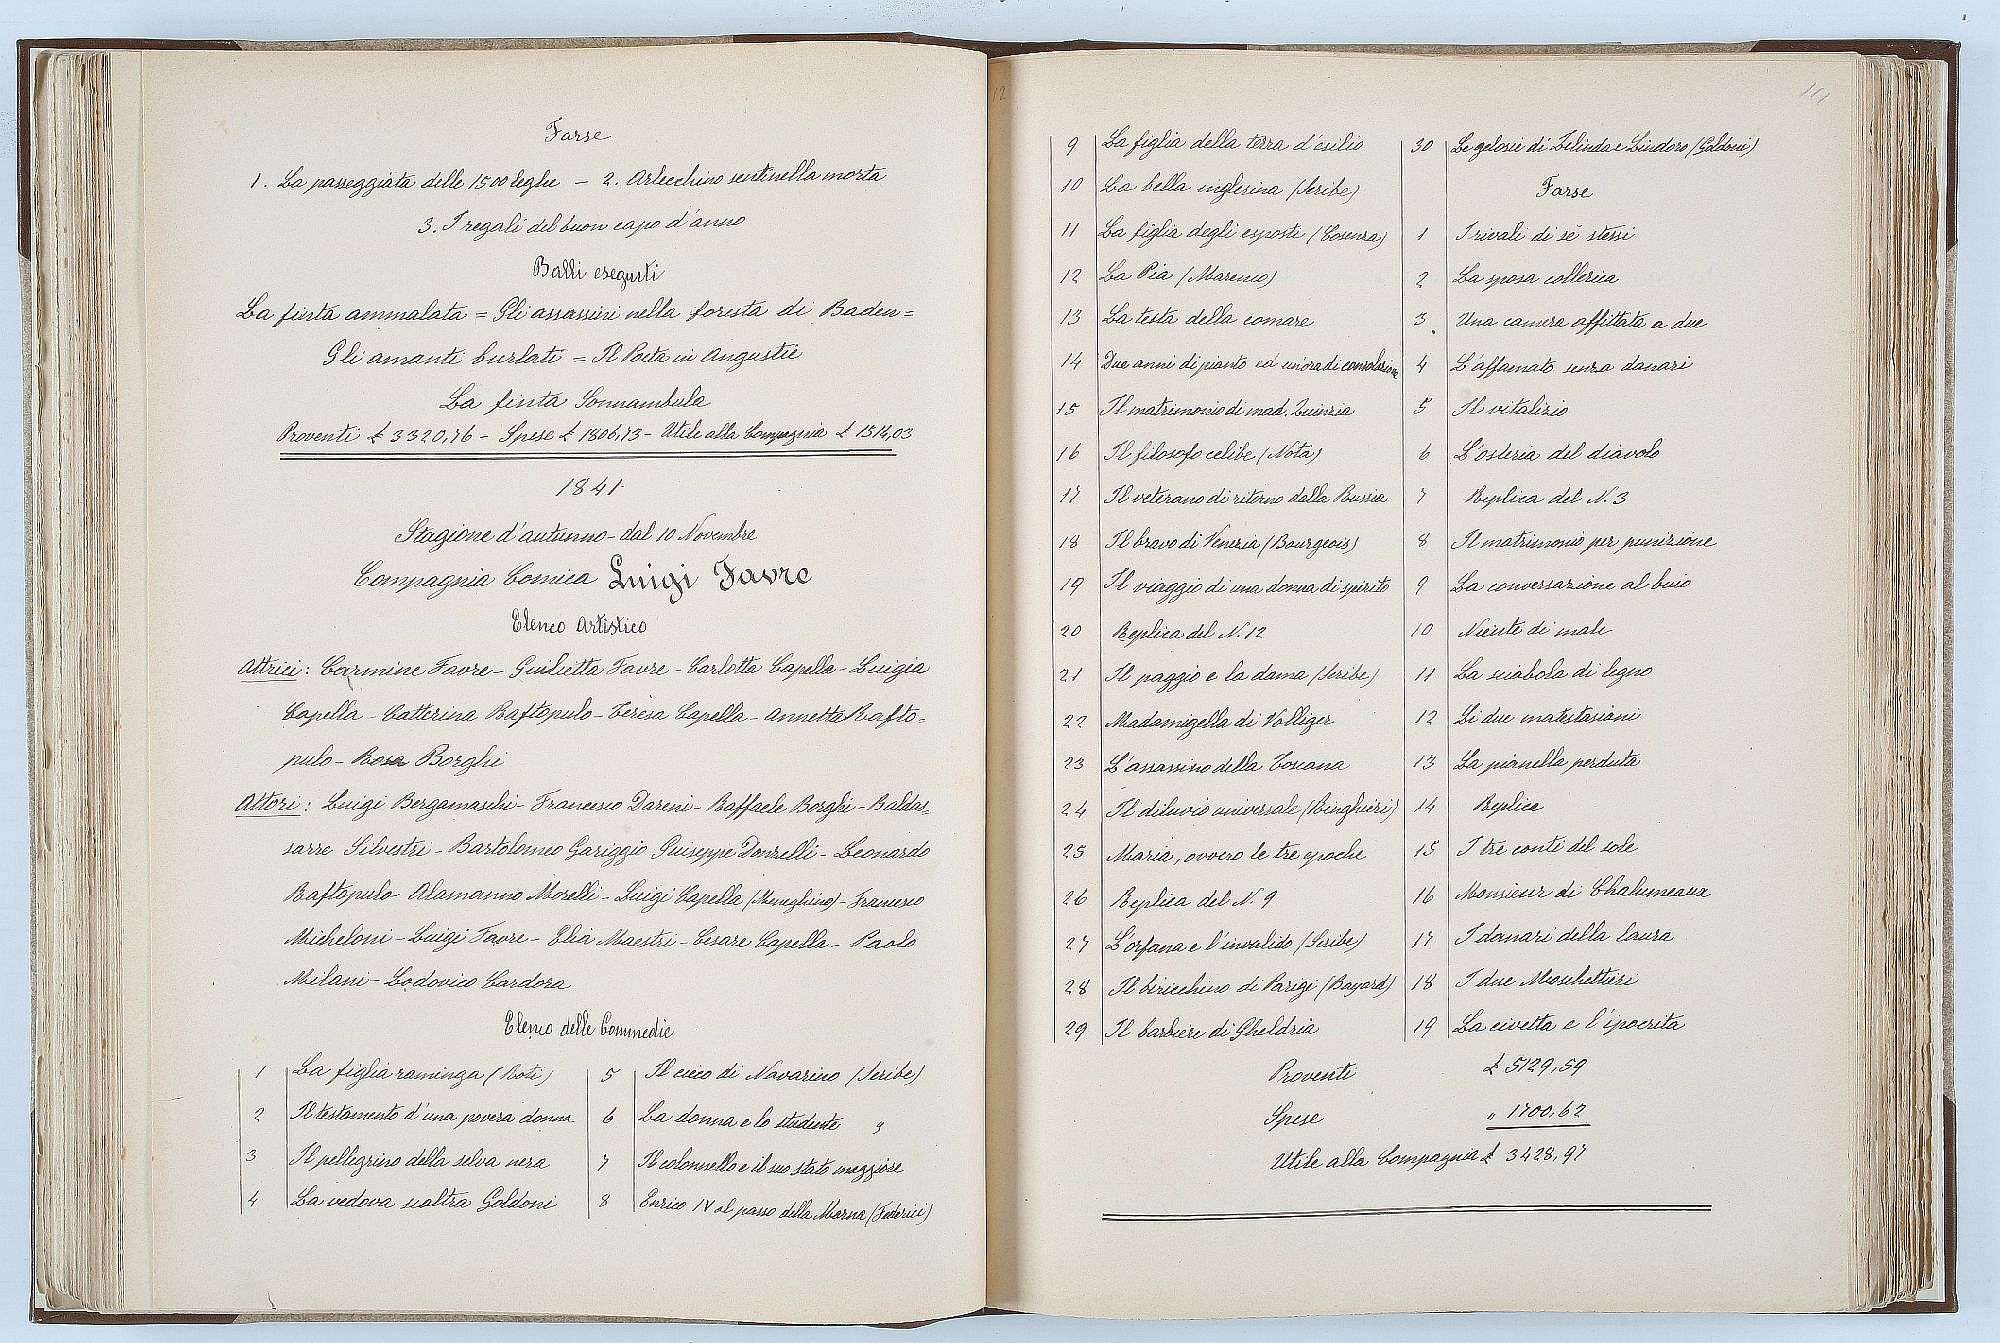 Farse
1. La passeggiata delle 1500 leghe – 2. Arlecchino sentinella morta
3. I regali del buon capo d'anno
Balli eseguiti
La finta ammalata = Gli assassini nella foresta di Baden =
Gli amanti burlati = Il Poeta in Angustie
La finta Sonnambula
Proventi £ 3320,76 – Spese £ 1806,73 – Utile alla Compagnia £ 1514,03
1841
Stagione d'autunno – dal 10 Novembre
Compagnia Comica Luigi Favre
Elenco Artistico
Attrici: Carmine Favre – Guilietta Favre – Carlotta Capella – Luigia
Capella – Catterina Raftopulo – Teresa Capella – Annetta Rafto-
pulo – Rosa Borghi
Attori: Luigi Bergamaschi – Francesco Dareni – Raffaele Borghi – Baldas-
sarre Silvestri – Bartolomeo Gariggio Guiseppe Donzelli – Leonardo
Raftopulo – Alamanno Morelli – Luigi Capella (Meneghino) – Francesco
Micheloni – Luigi Favre – Elia Maestri – Cesare Capella – Paolo
Milani – Lodovico Cardora
Elenco delle Commedie
1 La figlia raminga (Boti)
2 Il testamento d'una povera donna
3 Il pellegrino della selva nera
4 La vedova scaltra Goldoni
5 Il cieco di Navarino (Scribe)
6 La donna e lo studente "
7 Il colonnello e il suo stato maggiore
8 Enrico IV al passo della Marna (Federici)
12
9 La figlia della terra d'esilio
10 La bella inglesina (Scribe)
11 La figlia degli esposti (Cosenza)
12 La Pia (Marenco)
13 La testa della comare
14 Due anni di pianto ed un'ora di consolazione
15 Il matrimonio di mad. Quinzia
16 Il filosofo celibe (Nota)
17 Il veterano di ritorno dalla Russia
18 Il bravo di Venezia (Bourgeois)
19 Il viaggio di una donna di spirito
20 Replica del N. 12
21 Il paggio e la dama (Scribe)
22 Madamigella di Volliger
23 L'assassino della Toscana
24 Il diluvio universale (Ringhieri)
25 Maria, ovvero le tre epoche
26 Replica del N. 9
27 L'orfana e l'invalido (Scribe)
28 Il biricchino di Parigi (Bayard)
29 Il barbiere di Gheldria
30 Le gelosie di Zelinda e Lindoro (Goldoni)
Farse
1 I rivali di sé stessi
2 La sposa collerica
3 Una camera affittata a due
4 L'affamato senza danari
5 Il vitalizio
6 L'osteria del diavolo
7 Replica del N. 3
8 Il matrimonio per punizione
9 La conversazione al buio
10 Niente di male
11 La sciabola di legno
12 Li due matestasiani
13 La pianella perduta
14 Replica
15 I tre conti del sole
16 Monsieur di Chalumeaux
17 I danari della laura
18 I due Moschettieri
19 La civetta e l'ipocrita
Proventi £ 5129,59
Spese " 1700,62
Utile alla Compagnia £ 3428,97